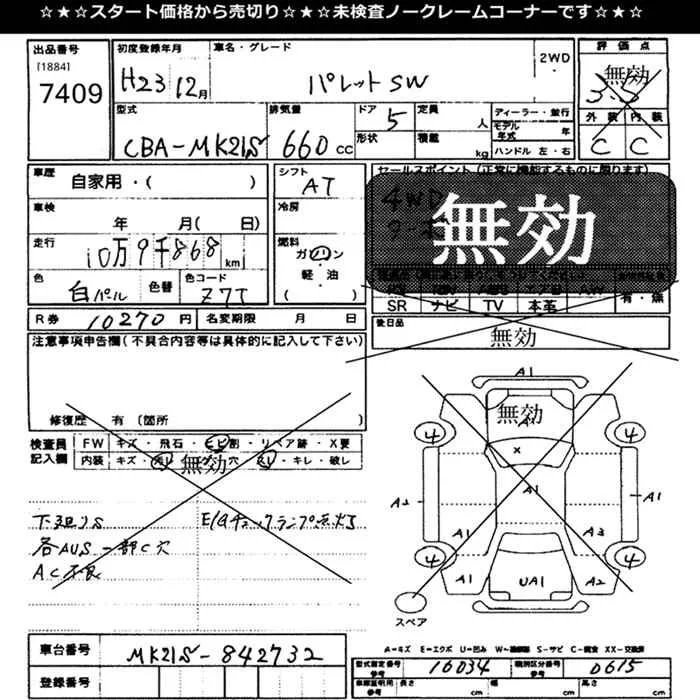 ☆★☆スタート価格から売切り☆★☆未検査ノークレームコーナーです☆★☆
出品番号 初度登録年月 車名・グレード 2WD 評価点
[1884] H23 12月 パレットSW 無効
7409 3.5
型式 排気量 ドア 定員 ディーラー・並行 外装 内装
CBA-MK21S 660cc 5 人 モデル年式 年 C C
形状 積載 kg ハンドル 左・右
車歴 自家用・( ) シフト AT セールスポイント(正常に機能するものに限ります)
4WD
車検 年 月( 日) 冷房 無効
走行 10万9千868km 燃料 ガソリン
軽・油
( )
色 白パール 色替 色コード Z7T
SR ナビ TV 本革 有・無
R券 10270円 名変期限 月 日 後日品 無効
注意事項申告欄(不具合内容等は具体的に記入して下さい)
修復歴 有 〔箇所 〕
検査員記入欄 FW キズ・飛石・ヒビ割・リペア跡・X要
内装 キズ・ 穴 ・キレ・破し
無効
下廻りS E/Gチェックランプ点灯
各AUS 一部C穴
AC不良
A1
無効
4 4
×
A2 A1 A1
A1 A3
4 4
A1 UA1 A2
スペア
A-キズ E-エクボ U-凹み W-補修跡 S-サビ C-腐食 XX-交換済
車台番号 MK21S-842732
登録番号
型式指定番号 16034 類別区分番号 0615
参考 参考
車庫証明用 長さ cm 幅 cm 高さ cm
参考